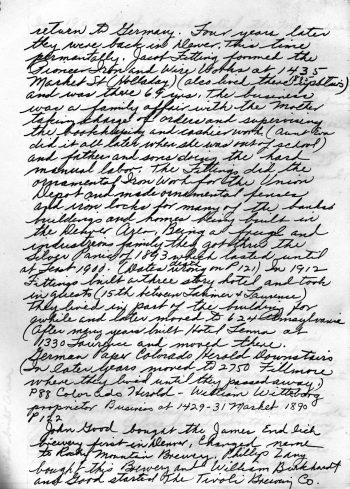 return to Germany. Four years later
they were back in Denver, this time
permanently. Jacob Fitting formed the
Pioneer Iron and Wire Works at 1435
Market St (Holladay) (also lived there upstairs)
and was there 69 yrs. the business
was a family affair with the Mother
taking charge of orders and supervising
the bookkeeping and cashier work (Aunt
did it all later when she was out of school)
and father and sons doing the hard
manual labor. The Fittings did the
ornamental Iron Work for the Union
Depot and made ornamental fences
and iron locks for many of the banks
buildings and homes being built in
the Denver Area. Being a frugal and
industrious family they got thru the
Silver Panic of 1893 which lasted until
at least 1900. (Dates wrong on P 121) In 1912
Fittings built a three story hotel and took
in guests (15th between Larimer & Lawrence)
they lived in part of the building for
awhile and later moved to 1224 Pennsylvania
(After many years built Hotel at
1330 Lawrence and moved there.
German Paper Colorado Herold Downstairs
(In later years moved to 2750 Fillmore
where they lived until they passed away.)
P88 Colorado Herold - William
proprietor Business at 1429-31 Market 1890
P122
John Good bought the James Endlich
brewery first in Denver, Changed name
to Rocky Mountain Brewery, Phillip Zang
bought this Brewery and William Burkhardt
and Good started The Tivoli Brewing Co.